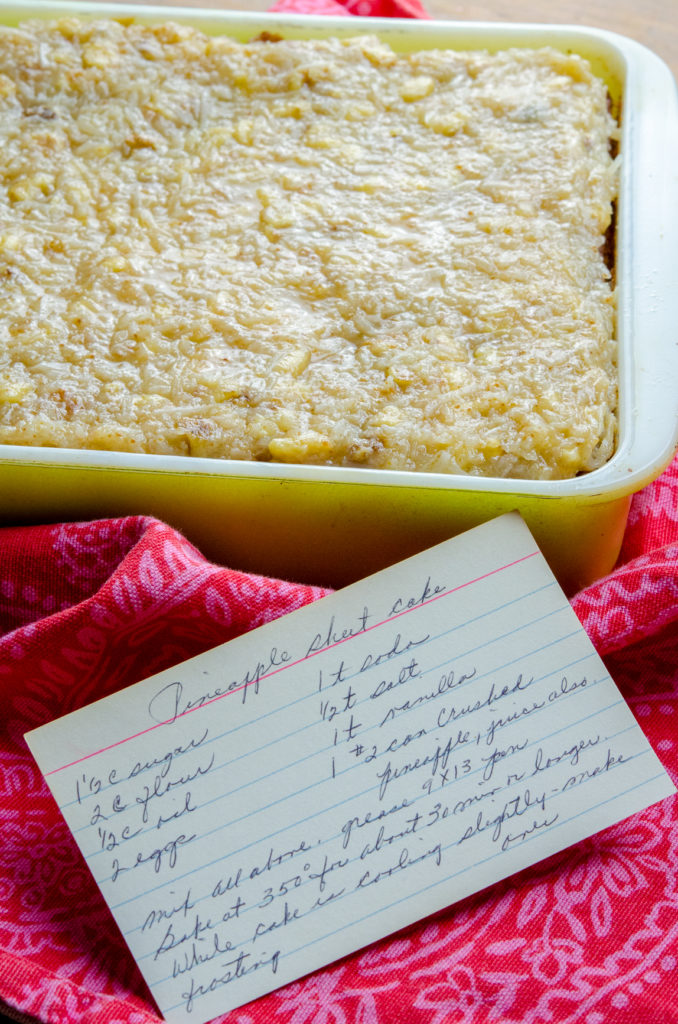 Pineapple sheet cake
1½ c sugar
2 c flour
½ c oil
2 eggs
1 t soda
½ t salt
1 t vanilla
1 #2 can crushed
pineapple, juice also.
Mix all above, grease 9x13 pan
Bake at 350° for about 30 min or longer.
While cake is cooling slightly - make
frosting
over